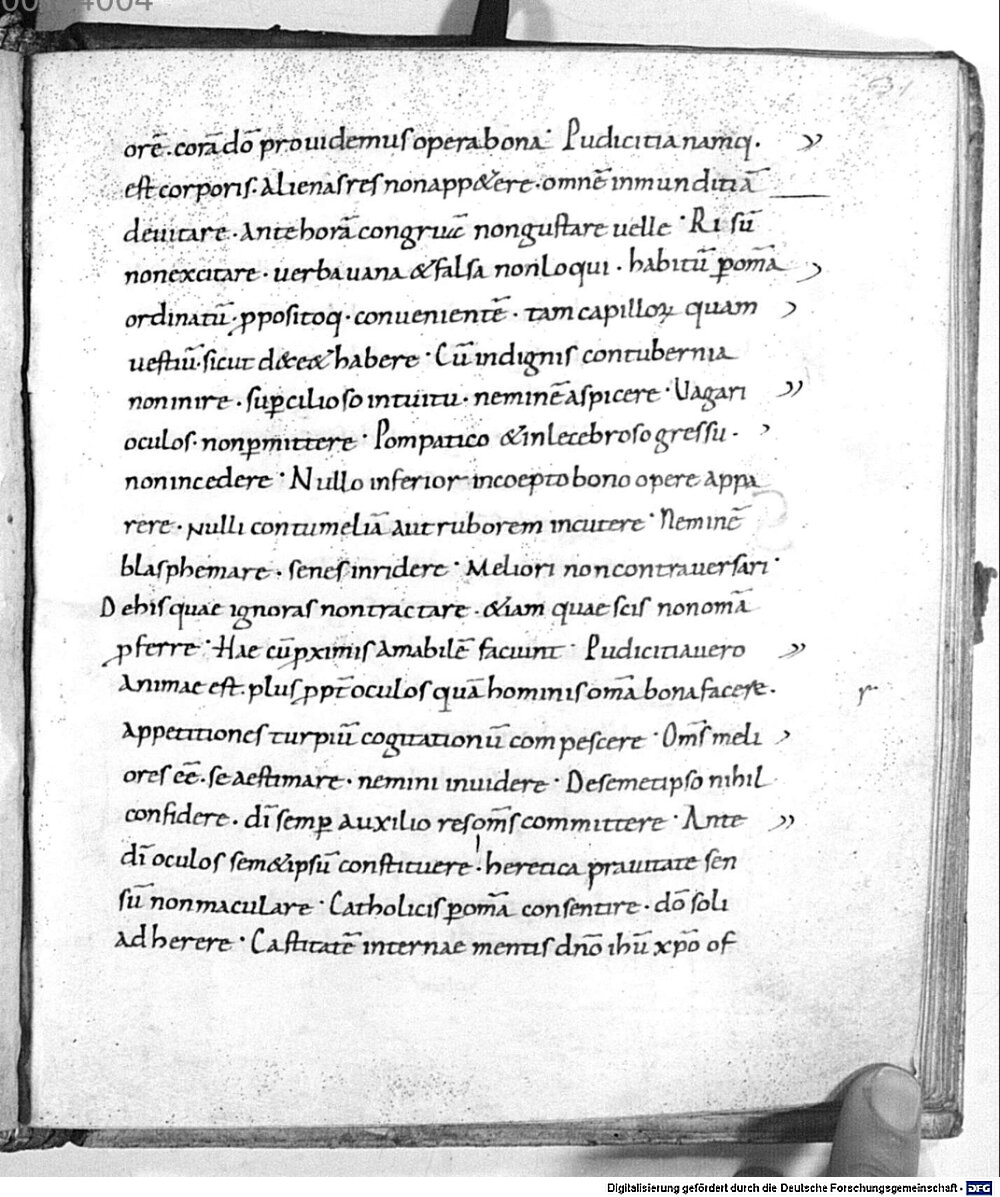 orē. corā dō prouidemus opera bona· Pudicitia namq.
est corporis. alienas res non app&ere. omnē inmunditiā
deuitare. Ante horā congruā non gustare uelle· Risū
non excitare. uerba uana & falsa non loqui. habitū p omā
ordinatū. ppositoq. conuenientē. tam capilloꝝ quam
uestiū. sicut dec& habere· Cū indignis contubernia
non inire. supcilioso intuitu. neminē aspicere· Uagari
oculos. non pmittere· Pompatico & inlecebroso gressu.
non incedere· Nullo inferior incoepto bono opere appa
rere. Nulli contumeliā aut ruborem incutere· Neminē
blasphemare. senes inridere· Meliori non contrauersari·
De his quae ignoras non tractare. &iam quae scis non omā
pferre· Hae cū pximis amabilē faciunt· Pudicitia uero
animae est. plus ppt oculos quā hominis omā bona facere.
appetitiones turpiū cogitationū compescere· Om̄s meli
ores eē. se aestimare. nemini inuidere· De semetipso nihil
confidere. dī semp auxilio res om̄s committere· Ante
dī oculos sem&ipsū constituere. heretica prauitate sen
sū non maculare· Catholicis p omā consentire. dō soli
adherere· Castitatē internae mentis dn̄o ihū xp̄o of
Digitalisierung gefördert durch die Deutsche Forschungsgemeinschaft - DFG